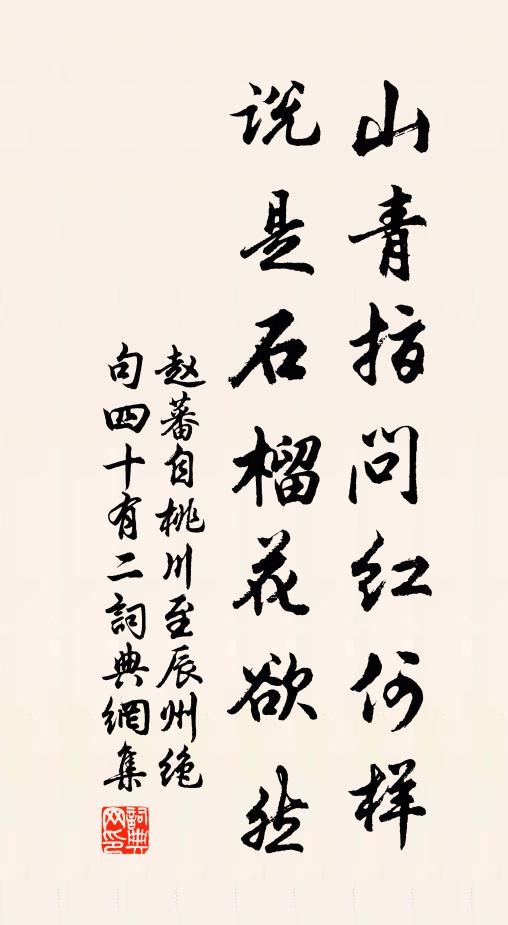 山青指问红何样
说是石榴花欲然
赵蕃自桃川至辰州绝
句四十有二詞典網集
詞典
网印